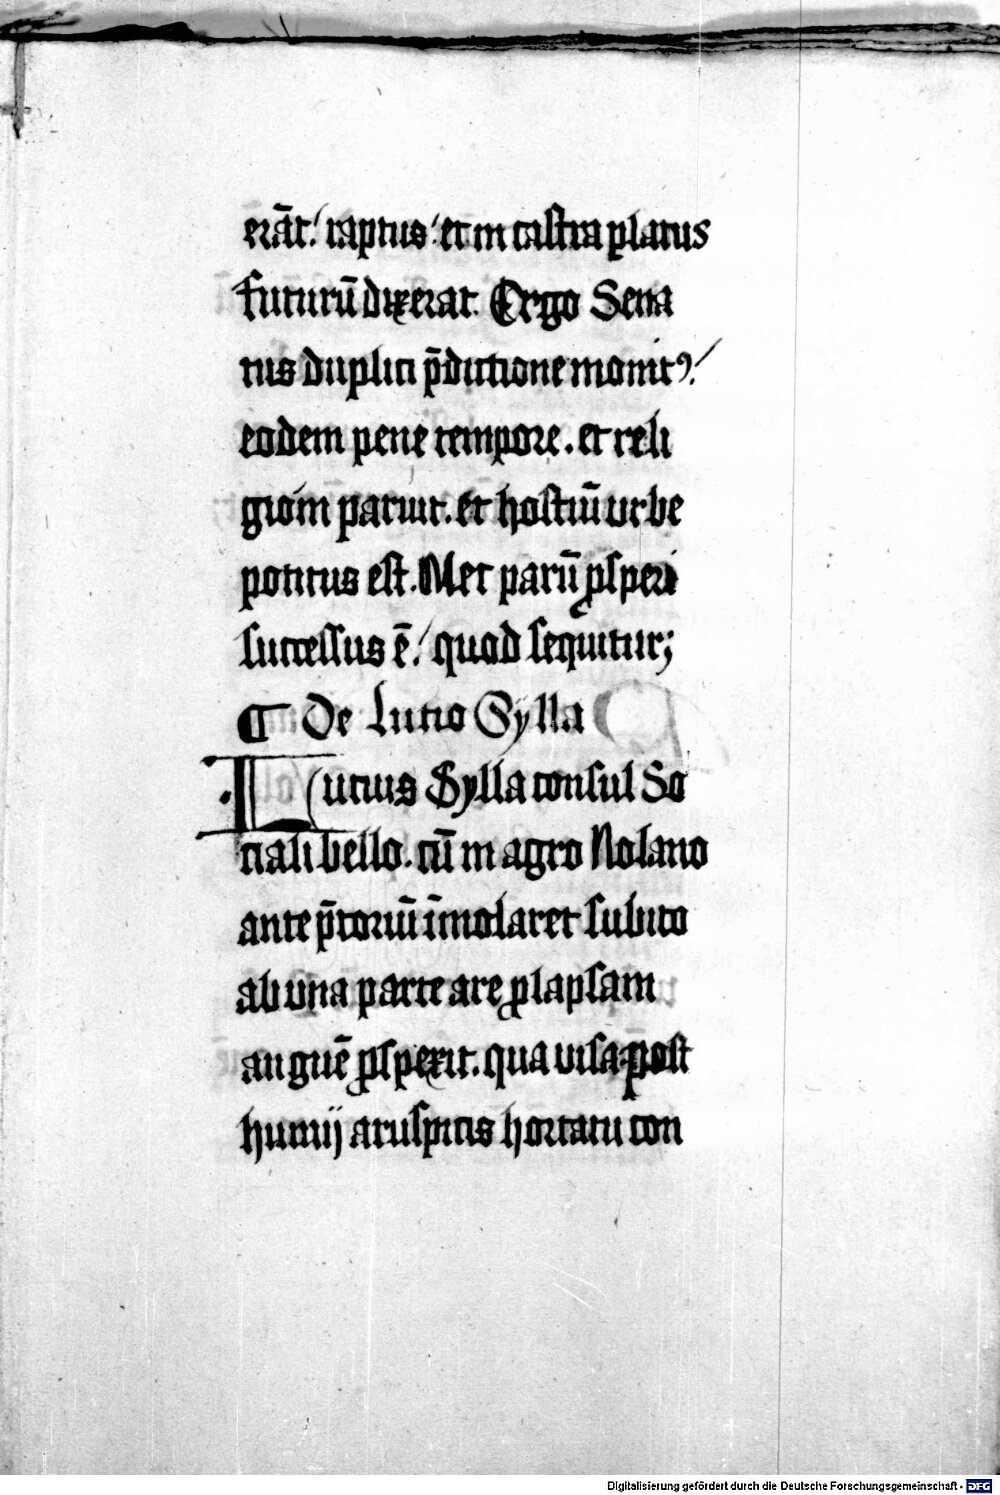 erāt! raptus! et in castra platus
futurū dixerat. Ergo Sena
tus duplici p̄dictione monitꝰ!
eodem pene tempore. et reli
gioni paruit. et hostiū urbe
potitus est. Nec parū ꝓsperi
successus ē! quod sequitur;
¶ De Lucio Sylla
Lucius Sylla consul So
ciali bello. cū in agro Nolano
ante p̄toriū īmolaret subito
ab una parte are ꝓlapsam
anguē ꝓspexit. qua uisa post
humij aruspicis hortatu con
Digitalisierung gefördert durch die Deutsche Forschungsgemeinschaft - DFG